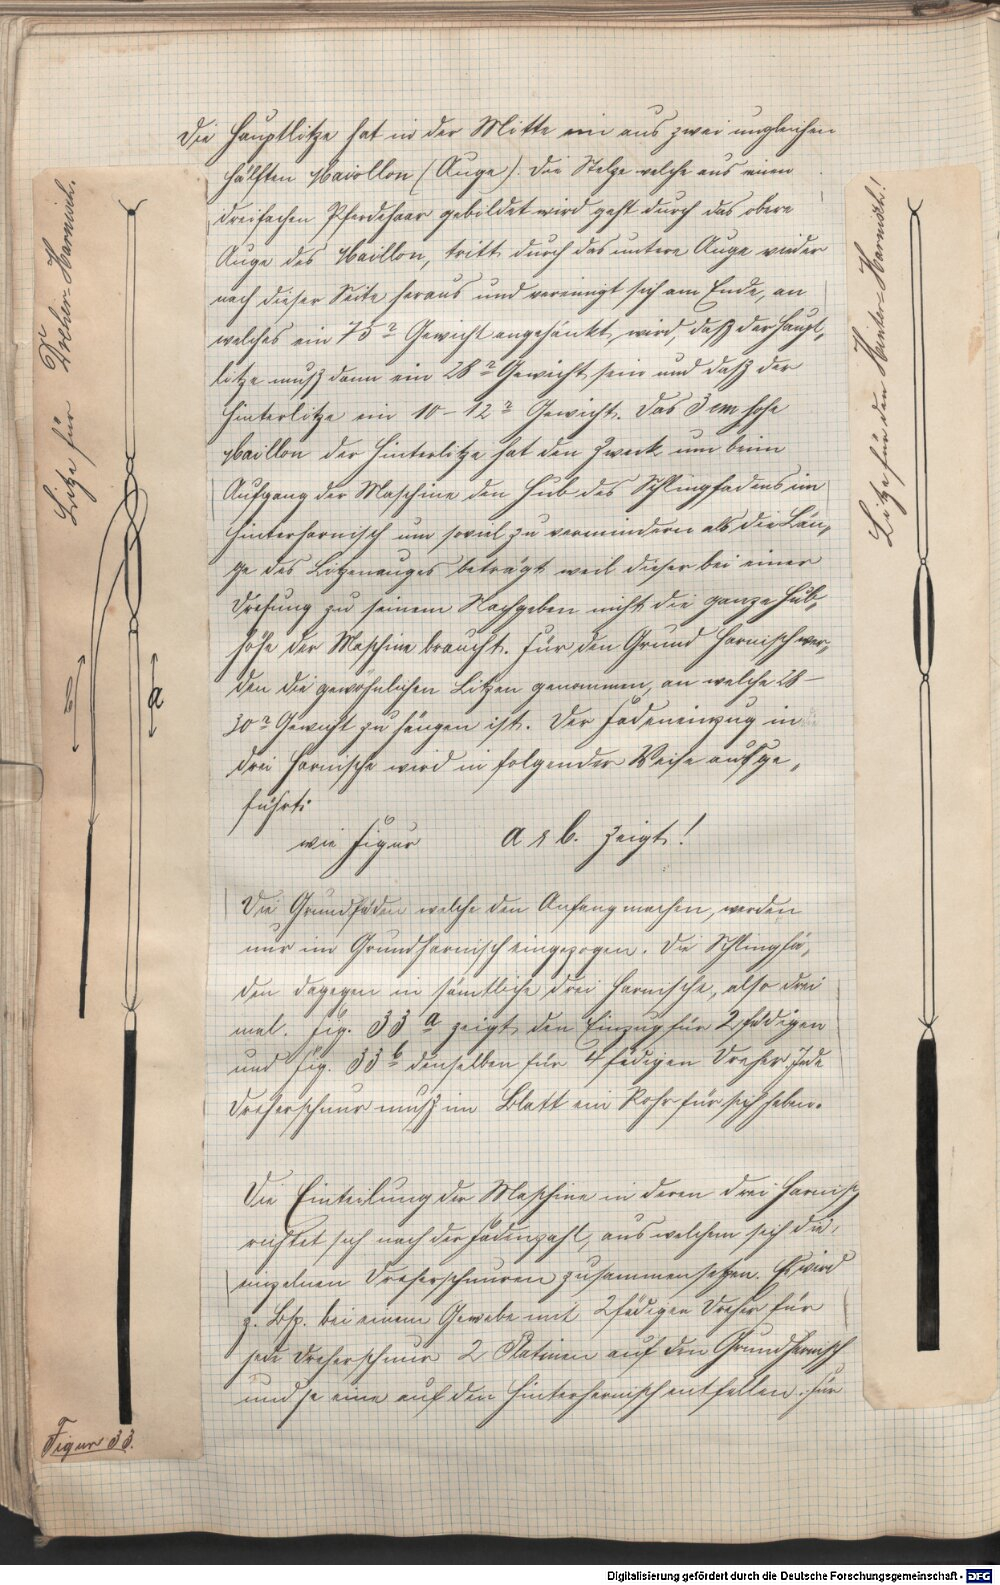 Die Hauptlitze hat in der Mitte ein aus zwei ungleichen
Hälften Maiollon (Auge). Die Stelze welche aus einem
dreifachen Pferdehaar gebildet wird geht durch das obere
Auge des Maillon, tritt durch das untere Auge wieder
nach dieser Seite heraus und vereinigt sich am Ende, an
welches ein 75 gr Gewicht angehänkt, wird, daß der Haupt-
litze muß dann ein 28 gr Gewicht sein und daß der
Hinterlitze ein 10-12 gr Gewicht. Das 3 cm hohe
Maillon der Hinterlitze hat den Zweck um beim
Aufgang der Maschine den Hub des Schlingfadens im
Hinterharnisch um soviel zu vermindern als die Län-
ge des Litzenauges beträgt weil dieser bei einer
Drehung zu seinem Nachgeben nicht die ganze Hub-
höhe der Maschine braucht. Für den Grund Harnisch wer-
den die gewöhnlichen Litzen genommen, an welche 28-
30 gr Gewicht zu hängen ist. Der Fadeneinzug in
drei Harnische wird in folgender Weise ausge-
führt:
wie Figur a & b. zeigt!
Die Grundfäden welche den Anfang machen, werden
nur im Grundharnisch eingezogen. Die Schlingfä-
den dagegen in sämtliche drei Harnische, also drei
mal. Fig. 33 a zeigt den Einzug für 2 fädigen
und Fig. 33 b denselben für 4 fädigen Dreher. Jede
Dreherschnur muß im Blatt ein Rohr für sich haben.
Die Einteilung der Maschine in deren drei Harnisch
richtet sich nach der Fadenzahl, aus welchem sich die
einzelnen Dreherschnuren zusammensetzen. Es wird
z. Bsp. bei einem Gewebe mit 2 fädigen Dreher für
jede Dreherschnur 2 Platinen auf den Grundharnisch
und je eine auf den Hinterharnisch entfallen. Für
Litze für Dreher-Harnisch.
a
Figur 33.
Litze für den Hinter-Harnisch!
Digitalisierung gefördert durch die Deutsche Forschungsgemeinschaft - DFG